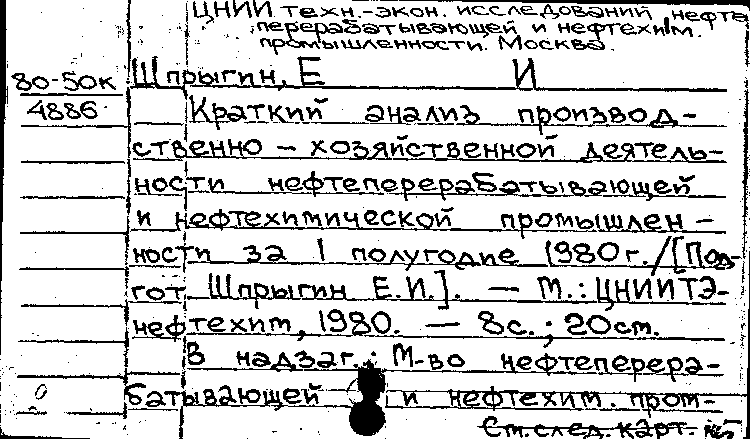 ЦНИИ техн.-экон. исследований нефте
перерабатывающей и нефтехим.
промышленности. Москва.
80-50к Шпрыгин, Е И
4886 Краткий анализ производ-
ственно – хозяйственной деятель-
ности нефтеперерабатывающей
и нефтехимической промышлен-
ности за I полугодие 1980г./[Под-
гот. Шпрыгин Е.И.]. — М.: ЦНИИТЭ-
нефтехим, 1980. — 8с.; 20см.
В надзаг.: М-во нефтеперера-
0 батывающей и нефтехим. пром-
См. след. карт.